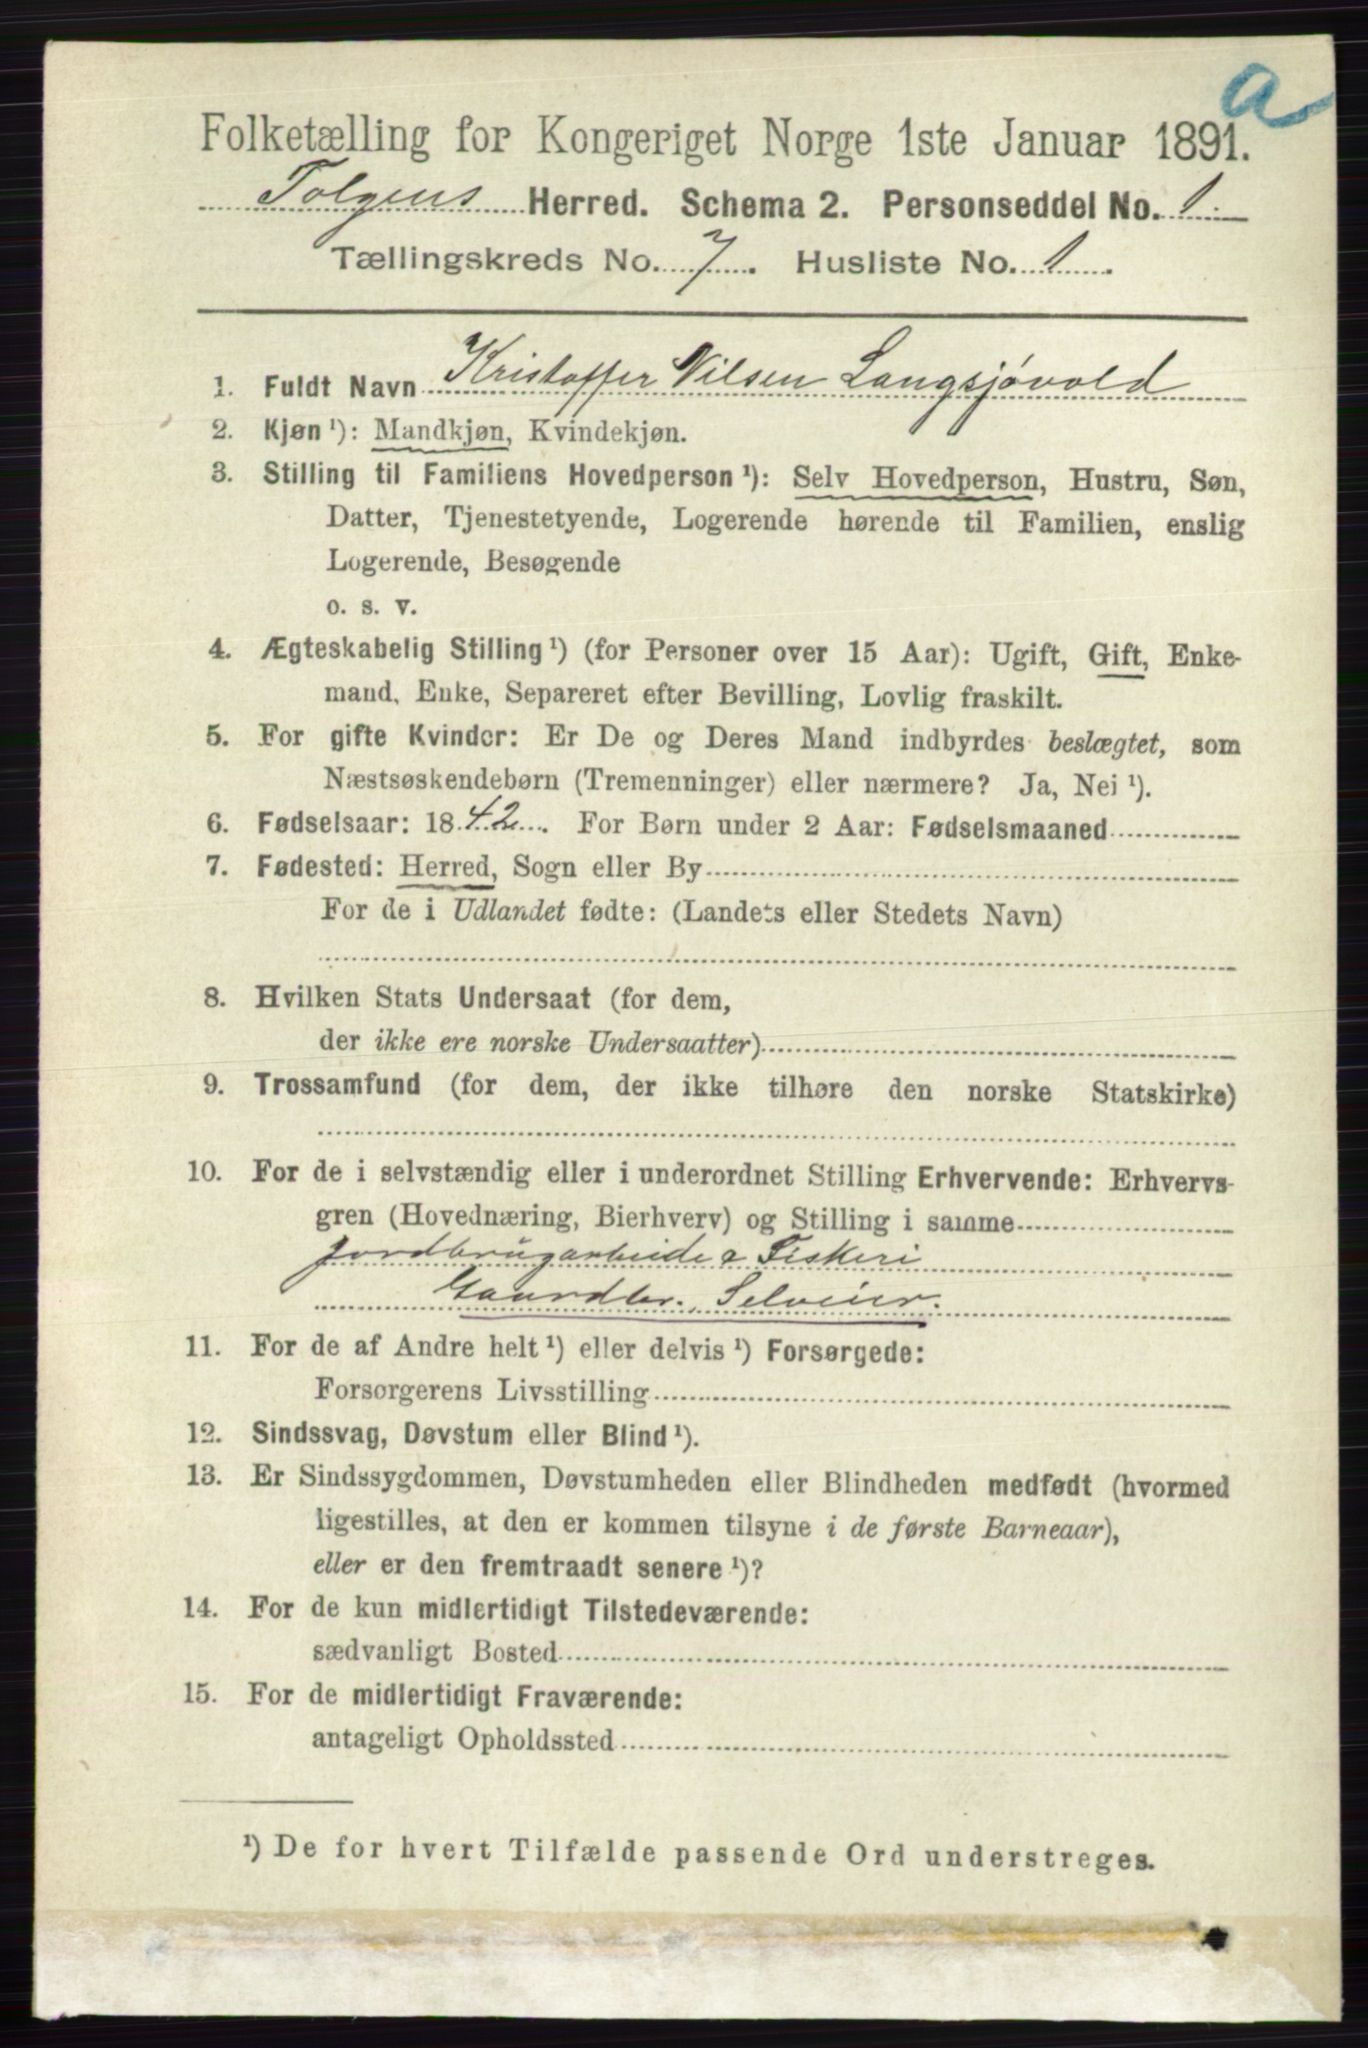 a
Folketælling for Kongeriget Norge 1ste Januar 1891.
Tolgens Herred. Schema 2. Personseddel No. 1.
Tællingskreds No. 7. Husliste No. 1.
1. Fuldt Navn Kristoffer Nilsen Langsjøvold
2. Kjøn ¹): Mandkjøn, Kvindekjøn.
3. Stilling til Familiens Hovedperson ¹): Selv Hovedperson, Hustru, Søn,
Datter, Tjenestetyende, Logerende hørende til Familien, enslig
Logerende, Besøgende
o. s. v.
4. Ægteskabelig Stilling ¹) (for Personer over 15 Aar): Ugift, Gift, Enke-
mand, Enke, Separeret efter Bevilling, Lovlig fraskilt.
5. For gifte Kvinder: Er De og Deres Mand indbyrdes beslægtet, som
Næstsøskendebørn (Tremenninger) eller nærmere? Ja, Nei ¹).
6. Fødselsaar: 1842. For Børn under 2 Aar: Fødselsmaaned
7. Fødested: Herred, Sogn eller By
For de i Udlandet fødte: (Landets eller Stedets Navn)
8. Hvilken Stats Undersaat (for dem,
der ikke ere norske Undersaatter)
9. Trossamfund (for dem, der ikke tilhøre den norske Statskirke)
10. For de i selvstændig eller i underordnet Stilling Erhvervende: Erhvervs-
gren (Hovednæring, Bierhverv) og Stilling i samme
Jordbrugarbeide & Fiskeri
Gaardbr. Selveier.
11. For de af Andre helt ¹) eller delvis ¹) Forsørgede:
Forsørgerens Livsstilling
12. Sindssvag, Døvstum eller Blind ¹).
13. Er Sindssygdommen, Døvstumheden eller Blindheden medfødt (hvormed
ligestilles, at den er kommen tilsyne i de første Barneaar),
eller er den fremtraadt senere ¹)?
14. For de kun midlertidigt Tilstedeværende:
sædvanligt Bosted
15. For de midlertidigt Fraværende:
antageligt Opholdssted
¹) De for hvert Tilfælde passende Ord understreges.